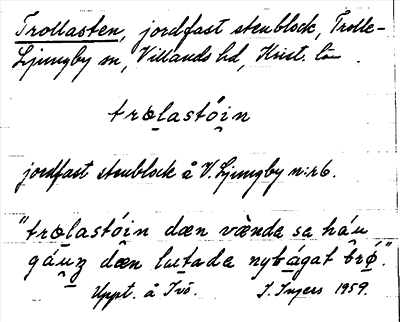 Trollasten, jordfast stenblock, Trolle-
Ljungby sn, Villands hd, Krist. län
trolastóin
jordfast stenblock å V. Ljungby nr 6.
"trolastóin dæn vænda sa háu
gáuz dæn lutada nybágat brǿ".
Uppt. å Ivö. I. Ingers 1959.